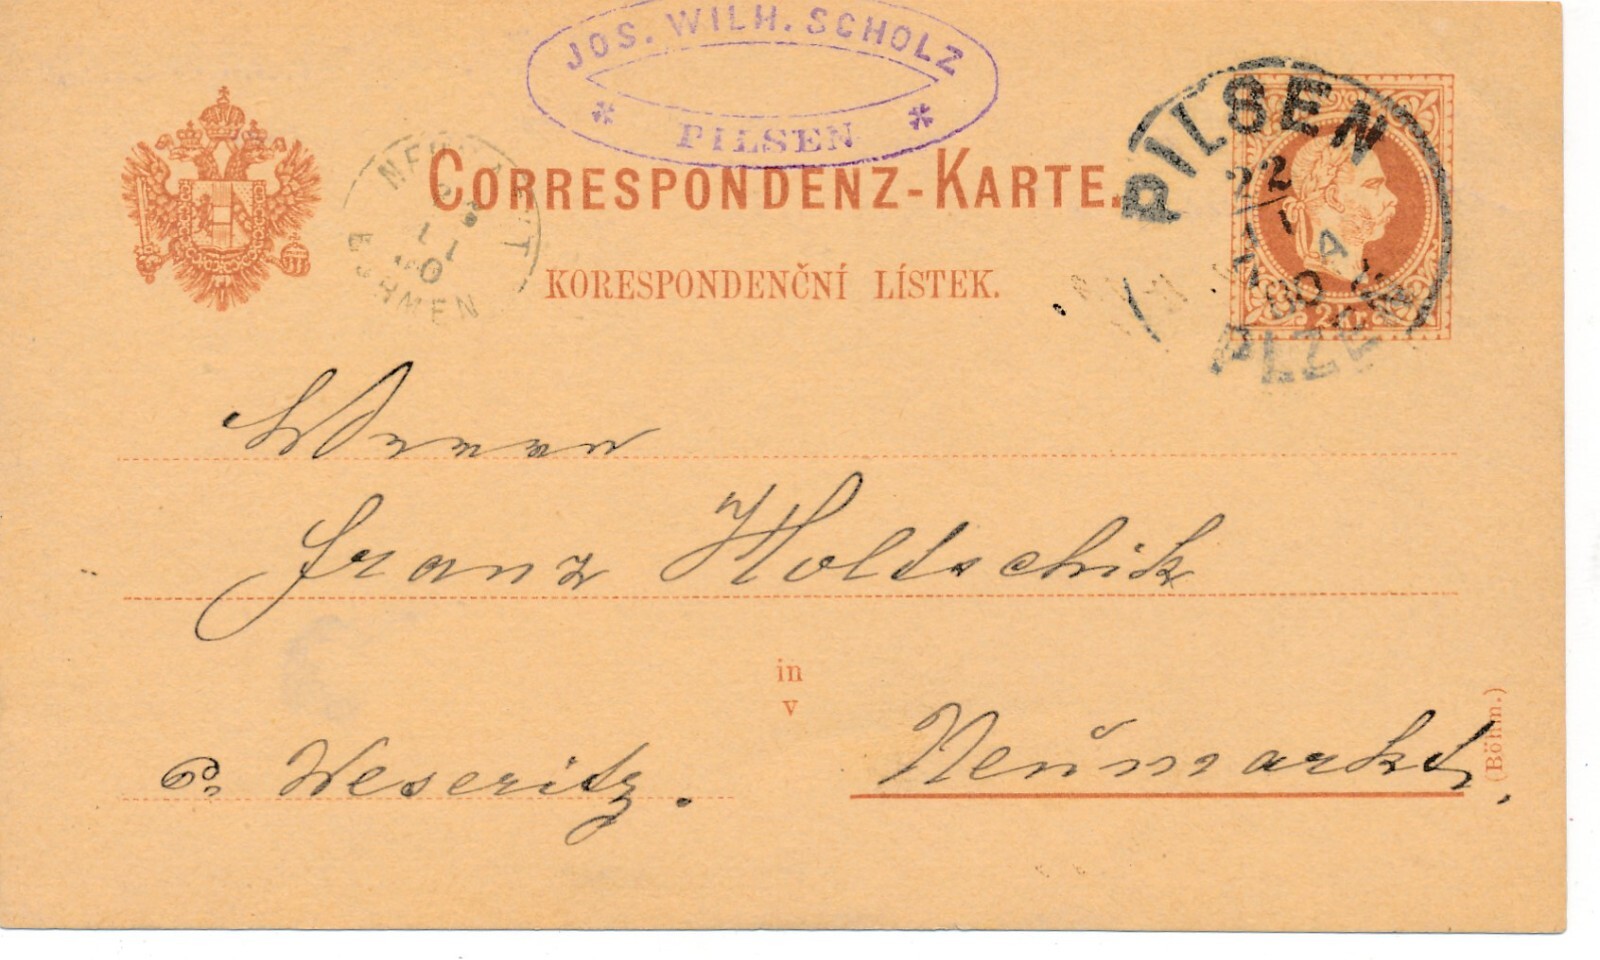 JOS. WILH. SCHOLZ
* PILSEN *
CORRESPONDENZ-KARTE.
KORESPONDENČNÍ LÍSTEK.
PILSEN
22
80
PLZEŇ
2 Kr.
BÖHMEN
Herrn
Franz Holtschik
in
v
p. Weseritz.
Neumarkt.
(Böhm.)